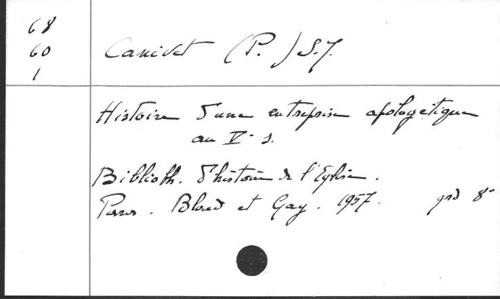 68
60
1
Canivet (P.) S.J.
Histoire d'une entreprise apologétique
au Ve s.
Biblioth. d'histoire de l'Eglise.
Paris. Bloud et Gay. 1957. grd 8°